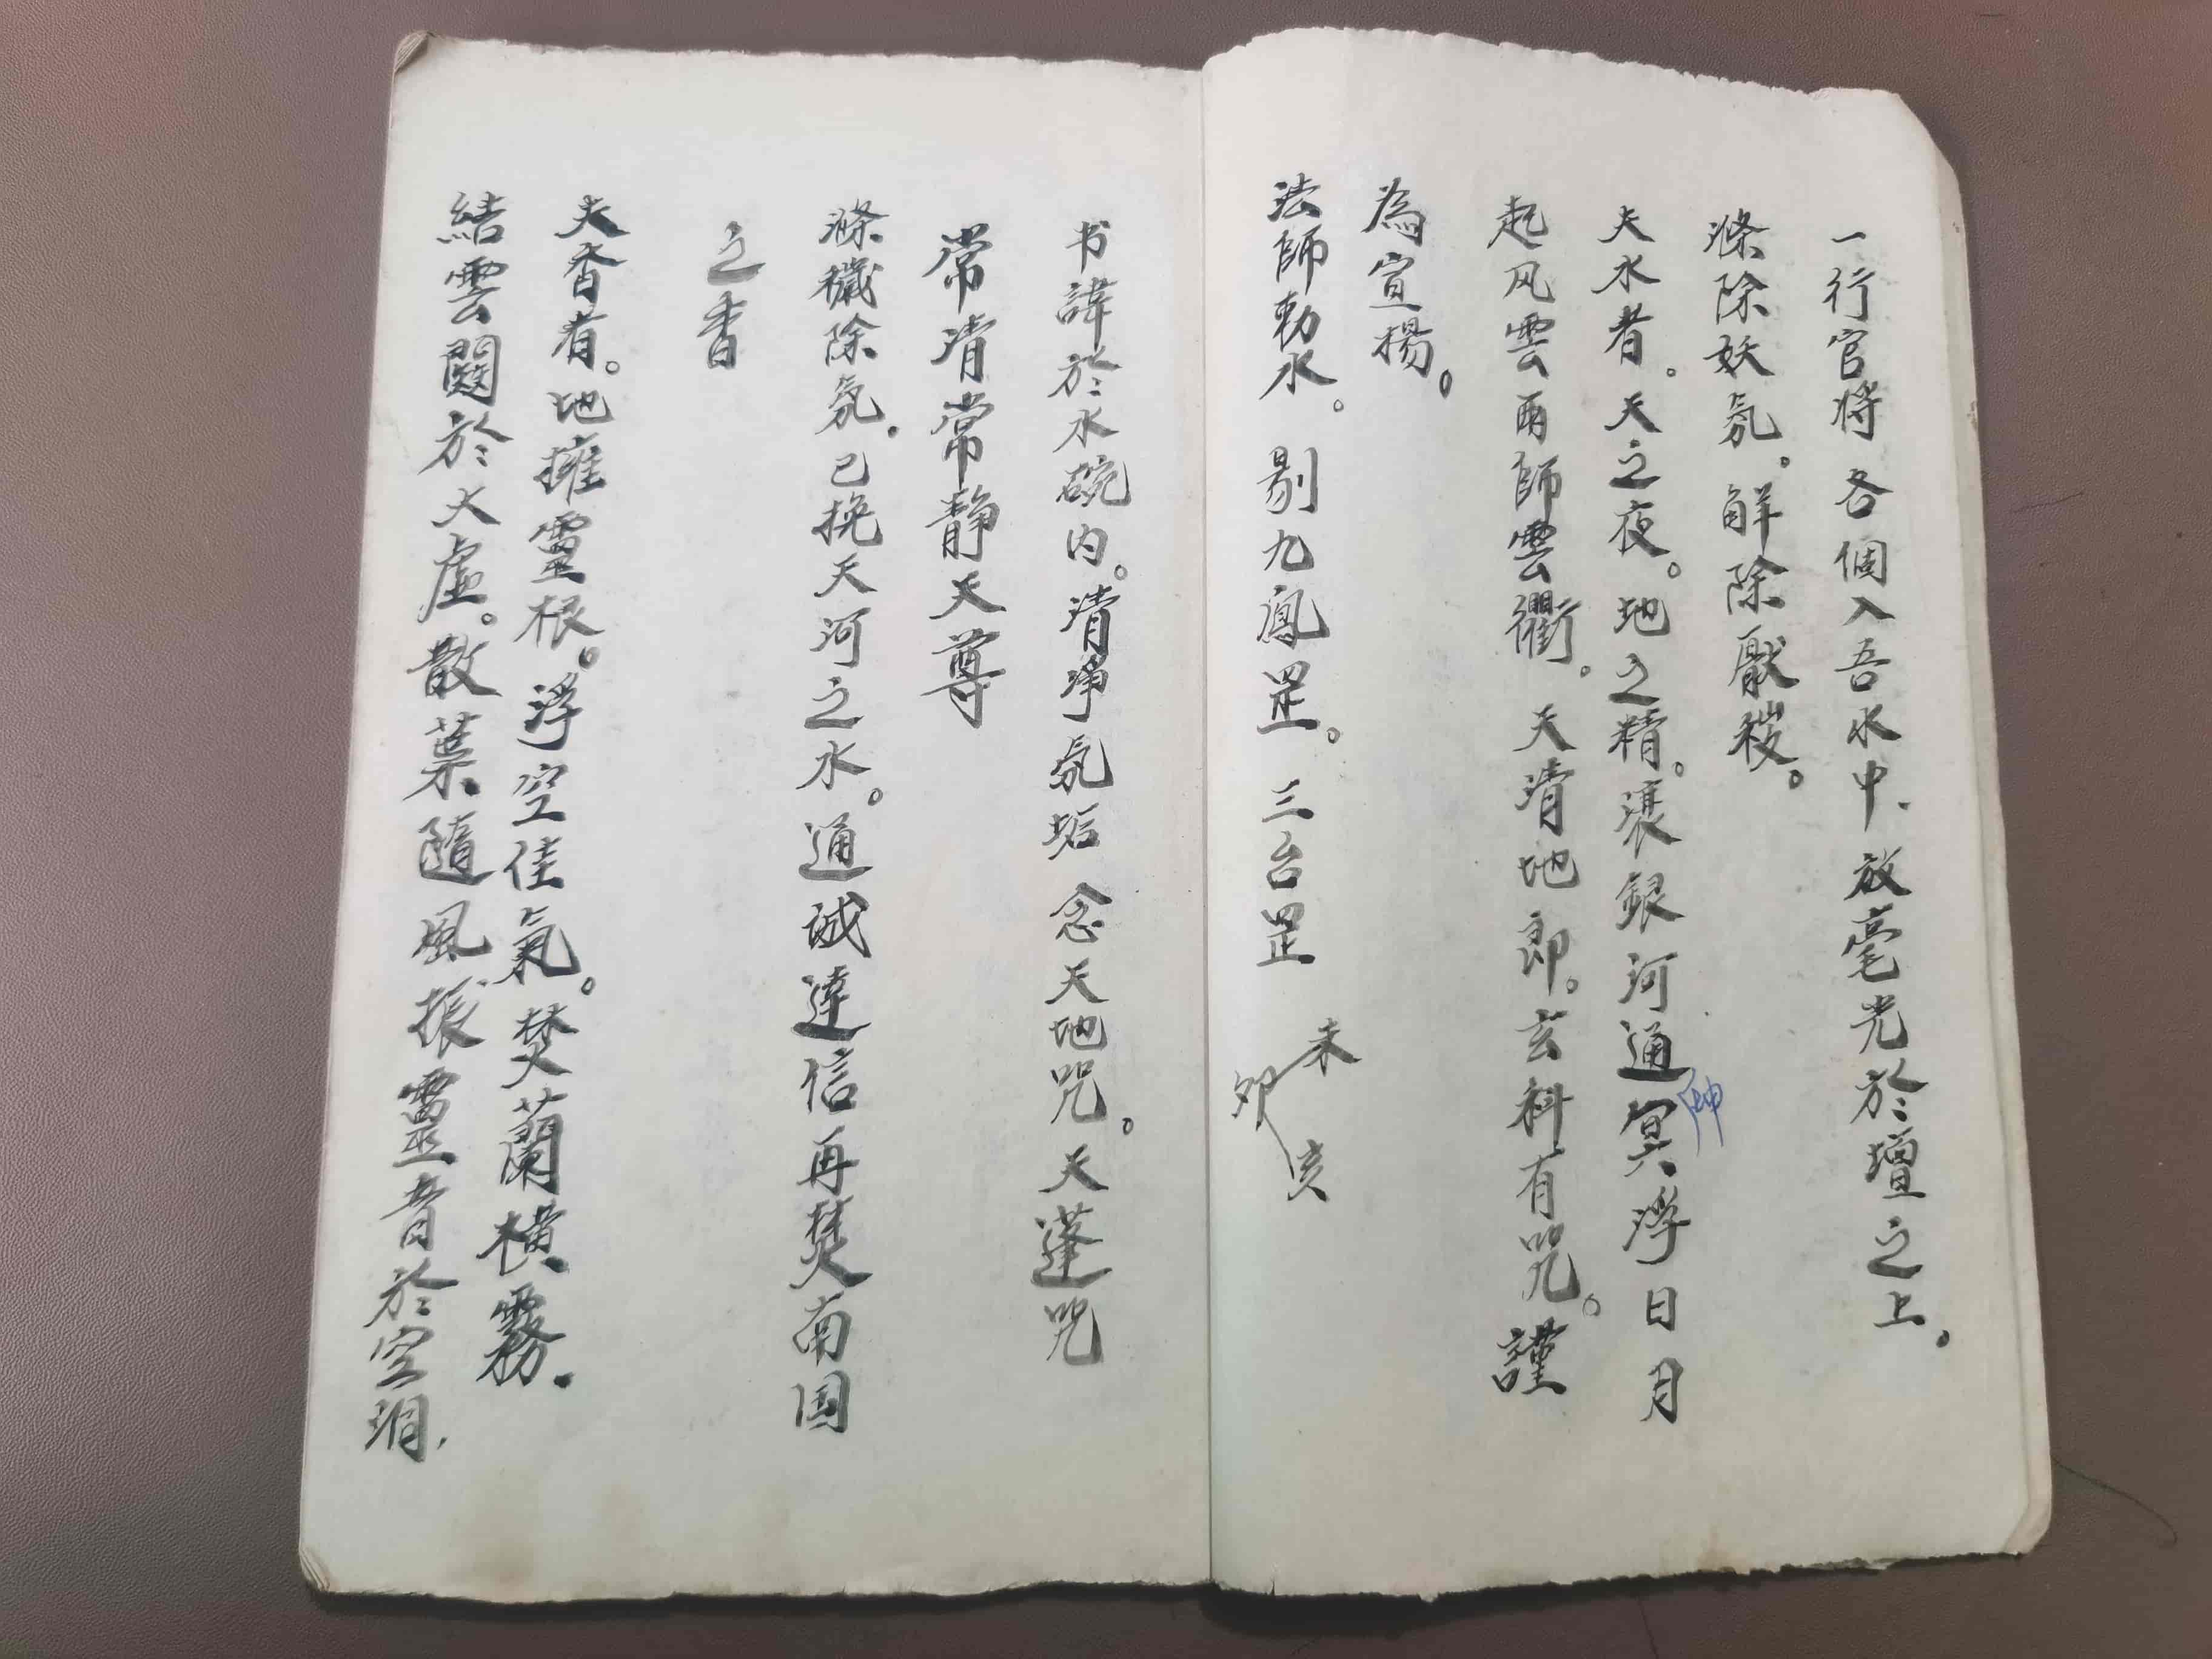 一行官将各個入吾水中.放毫光於壇之上。
滌除妖氛。解除厭穢。
夫水者。天之夜。地之精。濹銀河通冥浮日月
神
起风雲雨師雲衢。天清地即。玄科有咒。謹
為宣揚。
法師勅水。剔九鳳罡。三台罡
未
卯
亥
书諱於水碗内。清净氛垢念天地咒。天蓬咒
常清常静天尊
滌穢除氛.已挽天河之水。通诚達信再焚南国
之香
夫香者。地擁靈根。浮空佳氣。焚蘭横霧.
結雲闗於大虛。散葉隨風振靈音於空